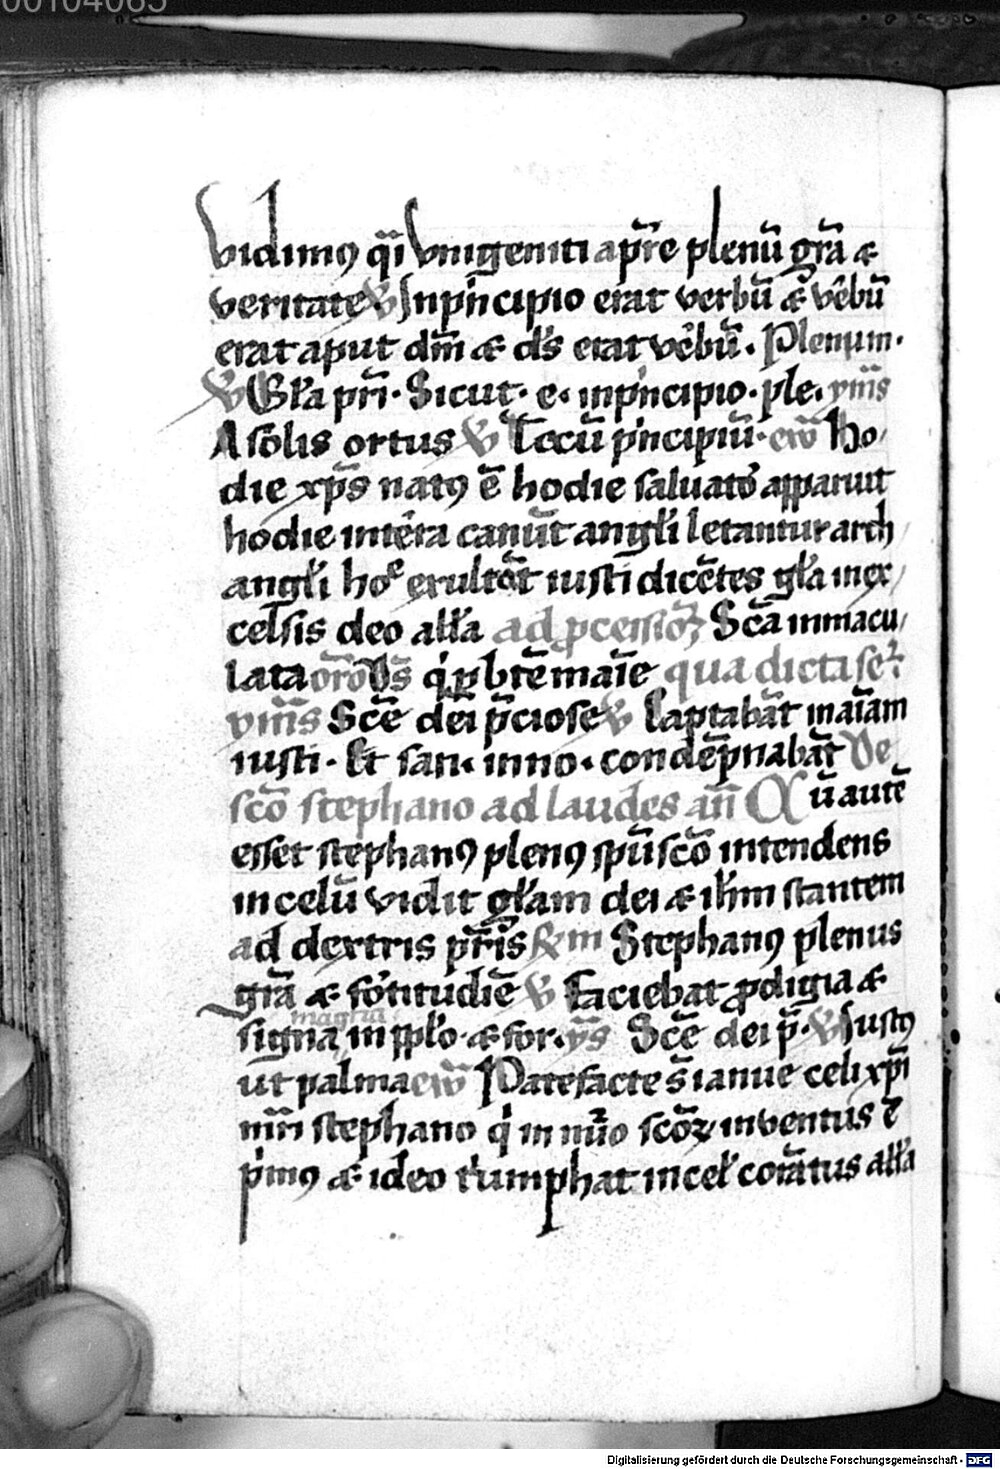 00104065
vidimꝯ q̄i vnigeniti a p̄re plenū grā &
veritate ℣ Inpͥncipio erat verbū & v̄bū
erat aput dm̄ & ds̄ erat v̄bū. Plenum.
℣ Gl̄a pr̄i. Sicut. e. inpͥncipio. ple. ymꝰ
A solis ortus ℣ Tecū pͥncipiū. ew̄ Ho/
die xp̄s natꝯ ē hodie saluatoᷣ apparuit
hodie in t̄ra canūt angl̄i letantur arch/
angl̄i hoͤ exultāt iusti dicētes gl̄a in ex/
celsis deo all̄a ad ꝓcessioꝫ Scā inmacu/
lata orō Ds̄ qͥ ꝑ btē maīe qua dicta seqᷣ
ymꝰ Scē dei p̄ciose ℣ Captabāt in aīam
iusti. Et san. inno. condēpnabāt De
scō stephano ad laudes an̄ Cū autē
esset stephanꝯ plenꝯ spū scō intendens
in celū vidit gl̄am dei & ihm̄ stantem
ad dextris pr̄is ℟m Stephanꝯ plenus
grā & fortitudīe ℣ Faciebat ꝓdigia &
magna
signa in ppl̄o. & for. ys̄ Scē dei p̄. ℣ Iustꝯ
ut palma ew̄ Patefacte s̄ ianue celi xp̄i
mr̄i stephano qͥ in nūo scōꝝ inventus ē
pͥmꝯ & ideo tͥumphat in cel̄ corōatus all̄a
Digitalisierung gefördert durch die Deutsche Forschungsgemeinschaft - DFG